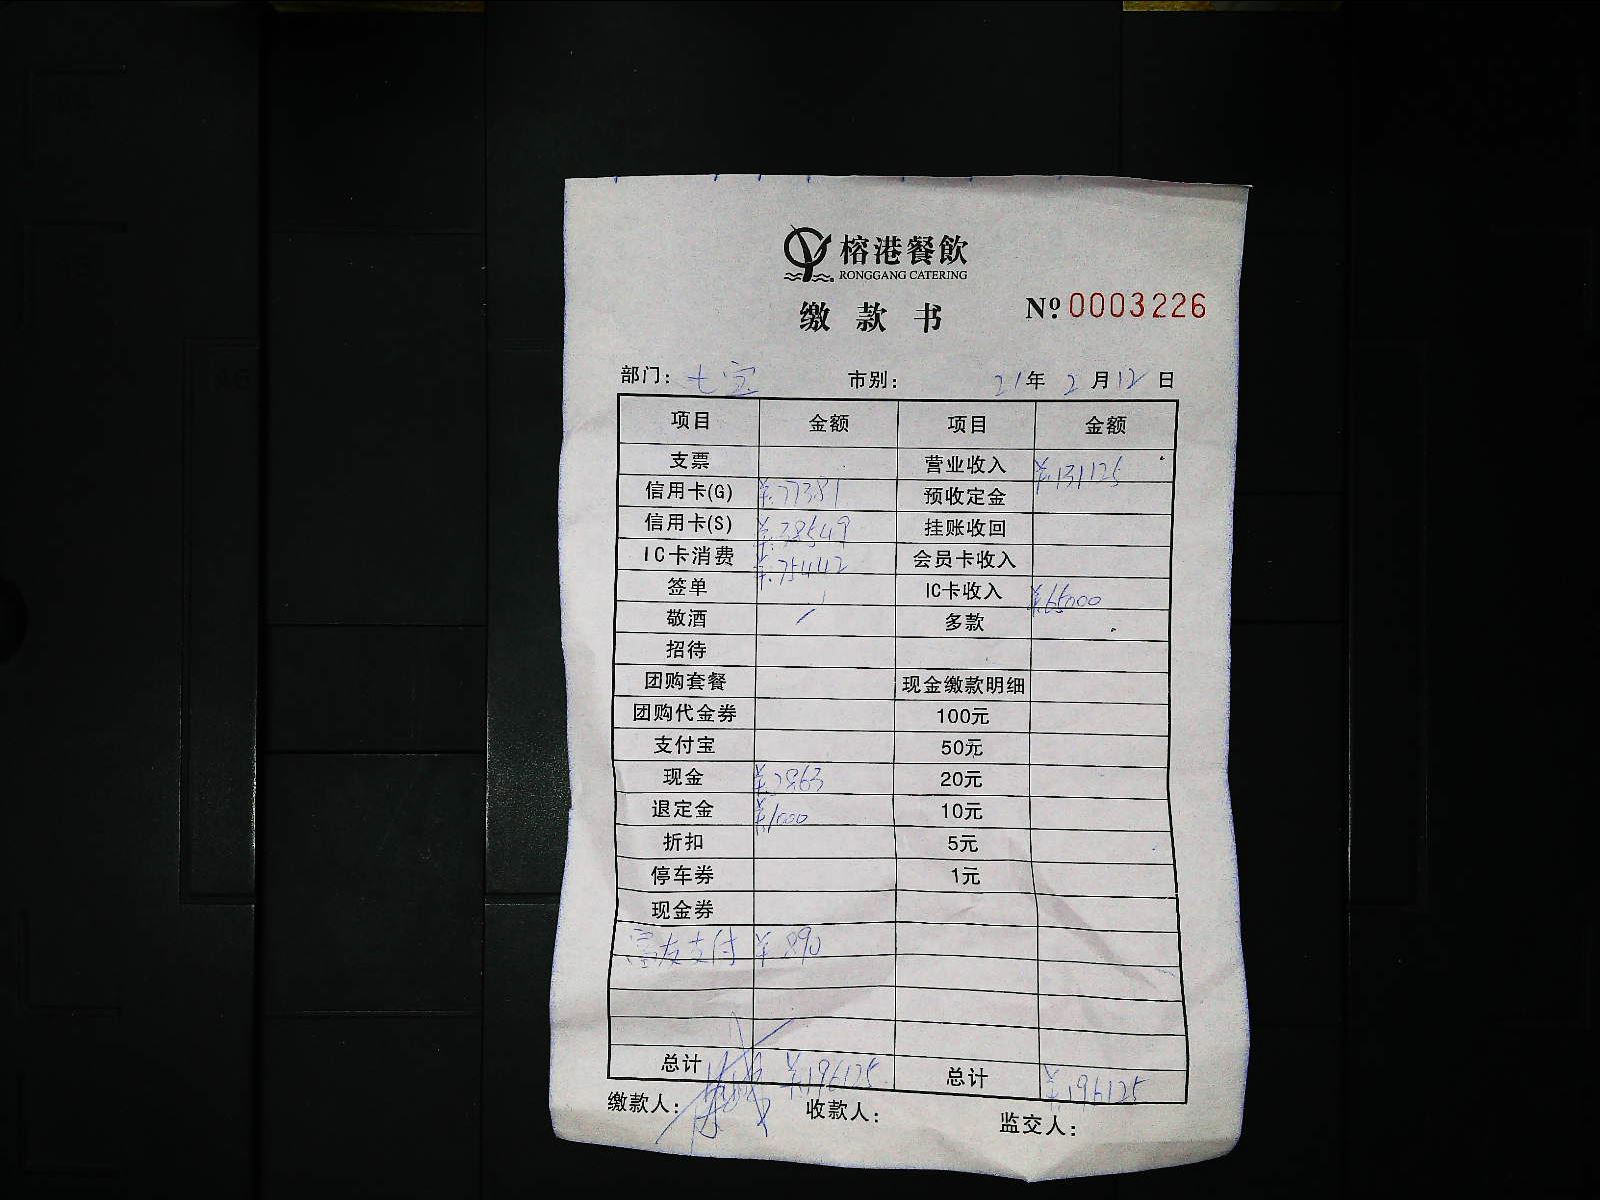 榕港餐飲
RONGGANG CATERING
缴款书 Nº 0003226
部门: 七宝 市别: 21年2月12日
项目 金额 项目 金额
支票 营业收入 ¥131125
信用卡(G) ¥77381 预收定金
信用卡(S) ¥38549 挂账收回
IC卡消费 ¥75442 会员卡收入
签单 IC卡收入 ¥65000
敬酒 多款
招待
团购套餐 现金缴款明细
团购代金券 100元
支付宝 50元
现金 ¥2863 20元
退定金 ¥1000 10元
折扣 5元
停车券 1元
现金券
富友支付 ¥890
总计 ¥196125 总计 ¥196125
缴款人: 收款人: 监交人: